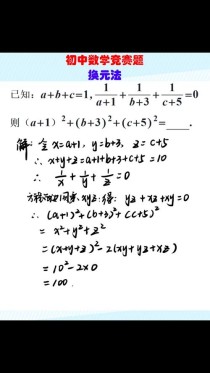 初中数学竞赛题
换元法
已知：a+b+c=1, 1/(a+1) + 1/(b+3) + 1/(c+5) =0
则(a+1)²+(b+3)²+(c+5)²=____.
解：令 x=a+1, y=b+3, z=c+5
∴ x+y+z=a+1+b+3+c+5=10
∴ 1/x + 1/y + 1/z =0
方程两边同乘xyz得：yz+xz+xy=0
∴ (a+1)²+(b+3)²+(c+5)²
= x²+y²+z²
=(x+y+z)²-2(xy+yz+xz)
=10²-2×0
=100